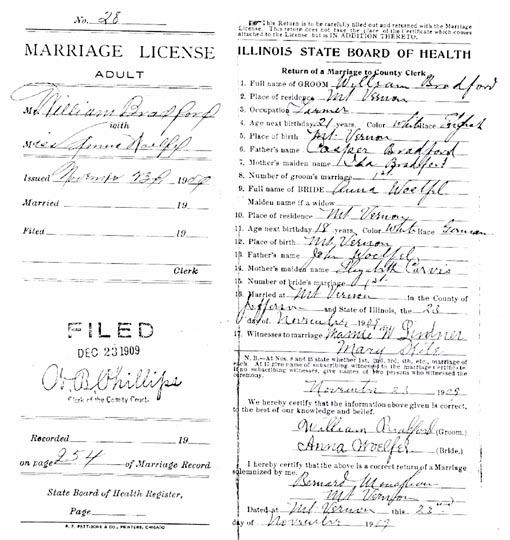 No. 28
MARRIAGE LICENSE
ADULT
Mr. William Bradford
with
Miss Anna Woelfl
Issued November 23d 1909
Married 19
Filed 19
Clerk
FILED
DEC 23 1909
Clerk of the County Court.
Recorded 19
on page 254 of Marriage Record
State Board of Health Register,
Page
This Return is to be carefully filled out and returned with the Marriage
License. This return does not take the place of the Certificate which comes
attached to the License but is IN ADDITION THERETO.
ILLINOIS STATE BOARD OF HEALTH
Return of a Marriage to County Clerk
1. Full name of GROOM William Bradford
2. Place of residence Mt Vernon
3. Occupation Farmer
4. Age next birthday 21 years, Color white Race English
5. Place of birth Mt. Vernon
6. Father's name Casper Bradford
7. Mother's maiden name Ida Bradford
8. Number of groom's marriage 1st
9. Full name of BRIDE Anna Woelfl
Maiden name if a widow
10. Place of residence Mt Vernon
11. Age next birthday 18 years, Color White Race German
12. Place of birth Mt. Vernon
13. Father's name John Woelfel
14. Mother's maiden name Elizabeth
15. Number of bride's marriage 1st.
16. Married at Mt Vernon in the County of
Jefferson and State of Illinois, the 23
day of November 1909
17. Witnesses to marriage Mamie W Lindner
Mary
N. B.—At Nos. 8 and 15 state whether 1st, 2nd, 3rd, 4th, etc., marriage of
each. At 17 give name of subscribing witnesses to the marriage Certificate.
If no subscribing witnesses, give names of two persons who witnessed the
ceremony.
November 23 1909
We hereby certify that the information above given is correct,
to the best of our knowledge and belief.
William Bradford (Groom.)
Anna Woelfel (Bride.)
I hereby certify that the above is a correct return of a Marriage
solemnized by me.
Bernard
Mt Vernon
Dated at Mt Vernon this 23rd
day of November 1909